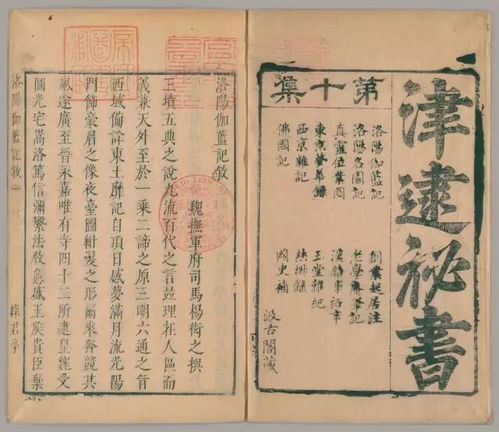 津逮祕書
第十集
洛陽伽藍記
洛陽名園記
真靈位業圖
東京夢華錄
西京雜記
佛國記
創業起居注
老學庵筆記
漢雜事祕辛
玉堂雜紀
焚椒錄
國史補
汲古閣藏
洛陽伽藍記敘
魏撫軍府司馬楊衒之撰
三墳五典之說九流百代之言並理在人區而
義兼天外至於一乘二諦之原三明六通之旨
西域備詳東土靡記自頂日感夢滿月流光陽
門飾豪眉之像夜臺圖紺髮之形爾來奔競其
風遂廣至晉永嘉唯有寺四十二所逮皇魏受
圖光宅嵩洛篤信彌繁法教愈盛王侯貴臣棄
洛陽伽藍記敘
綠君亭